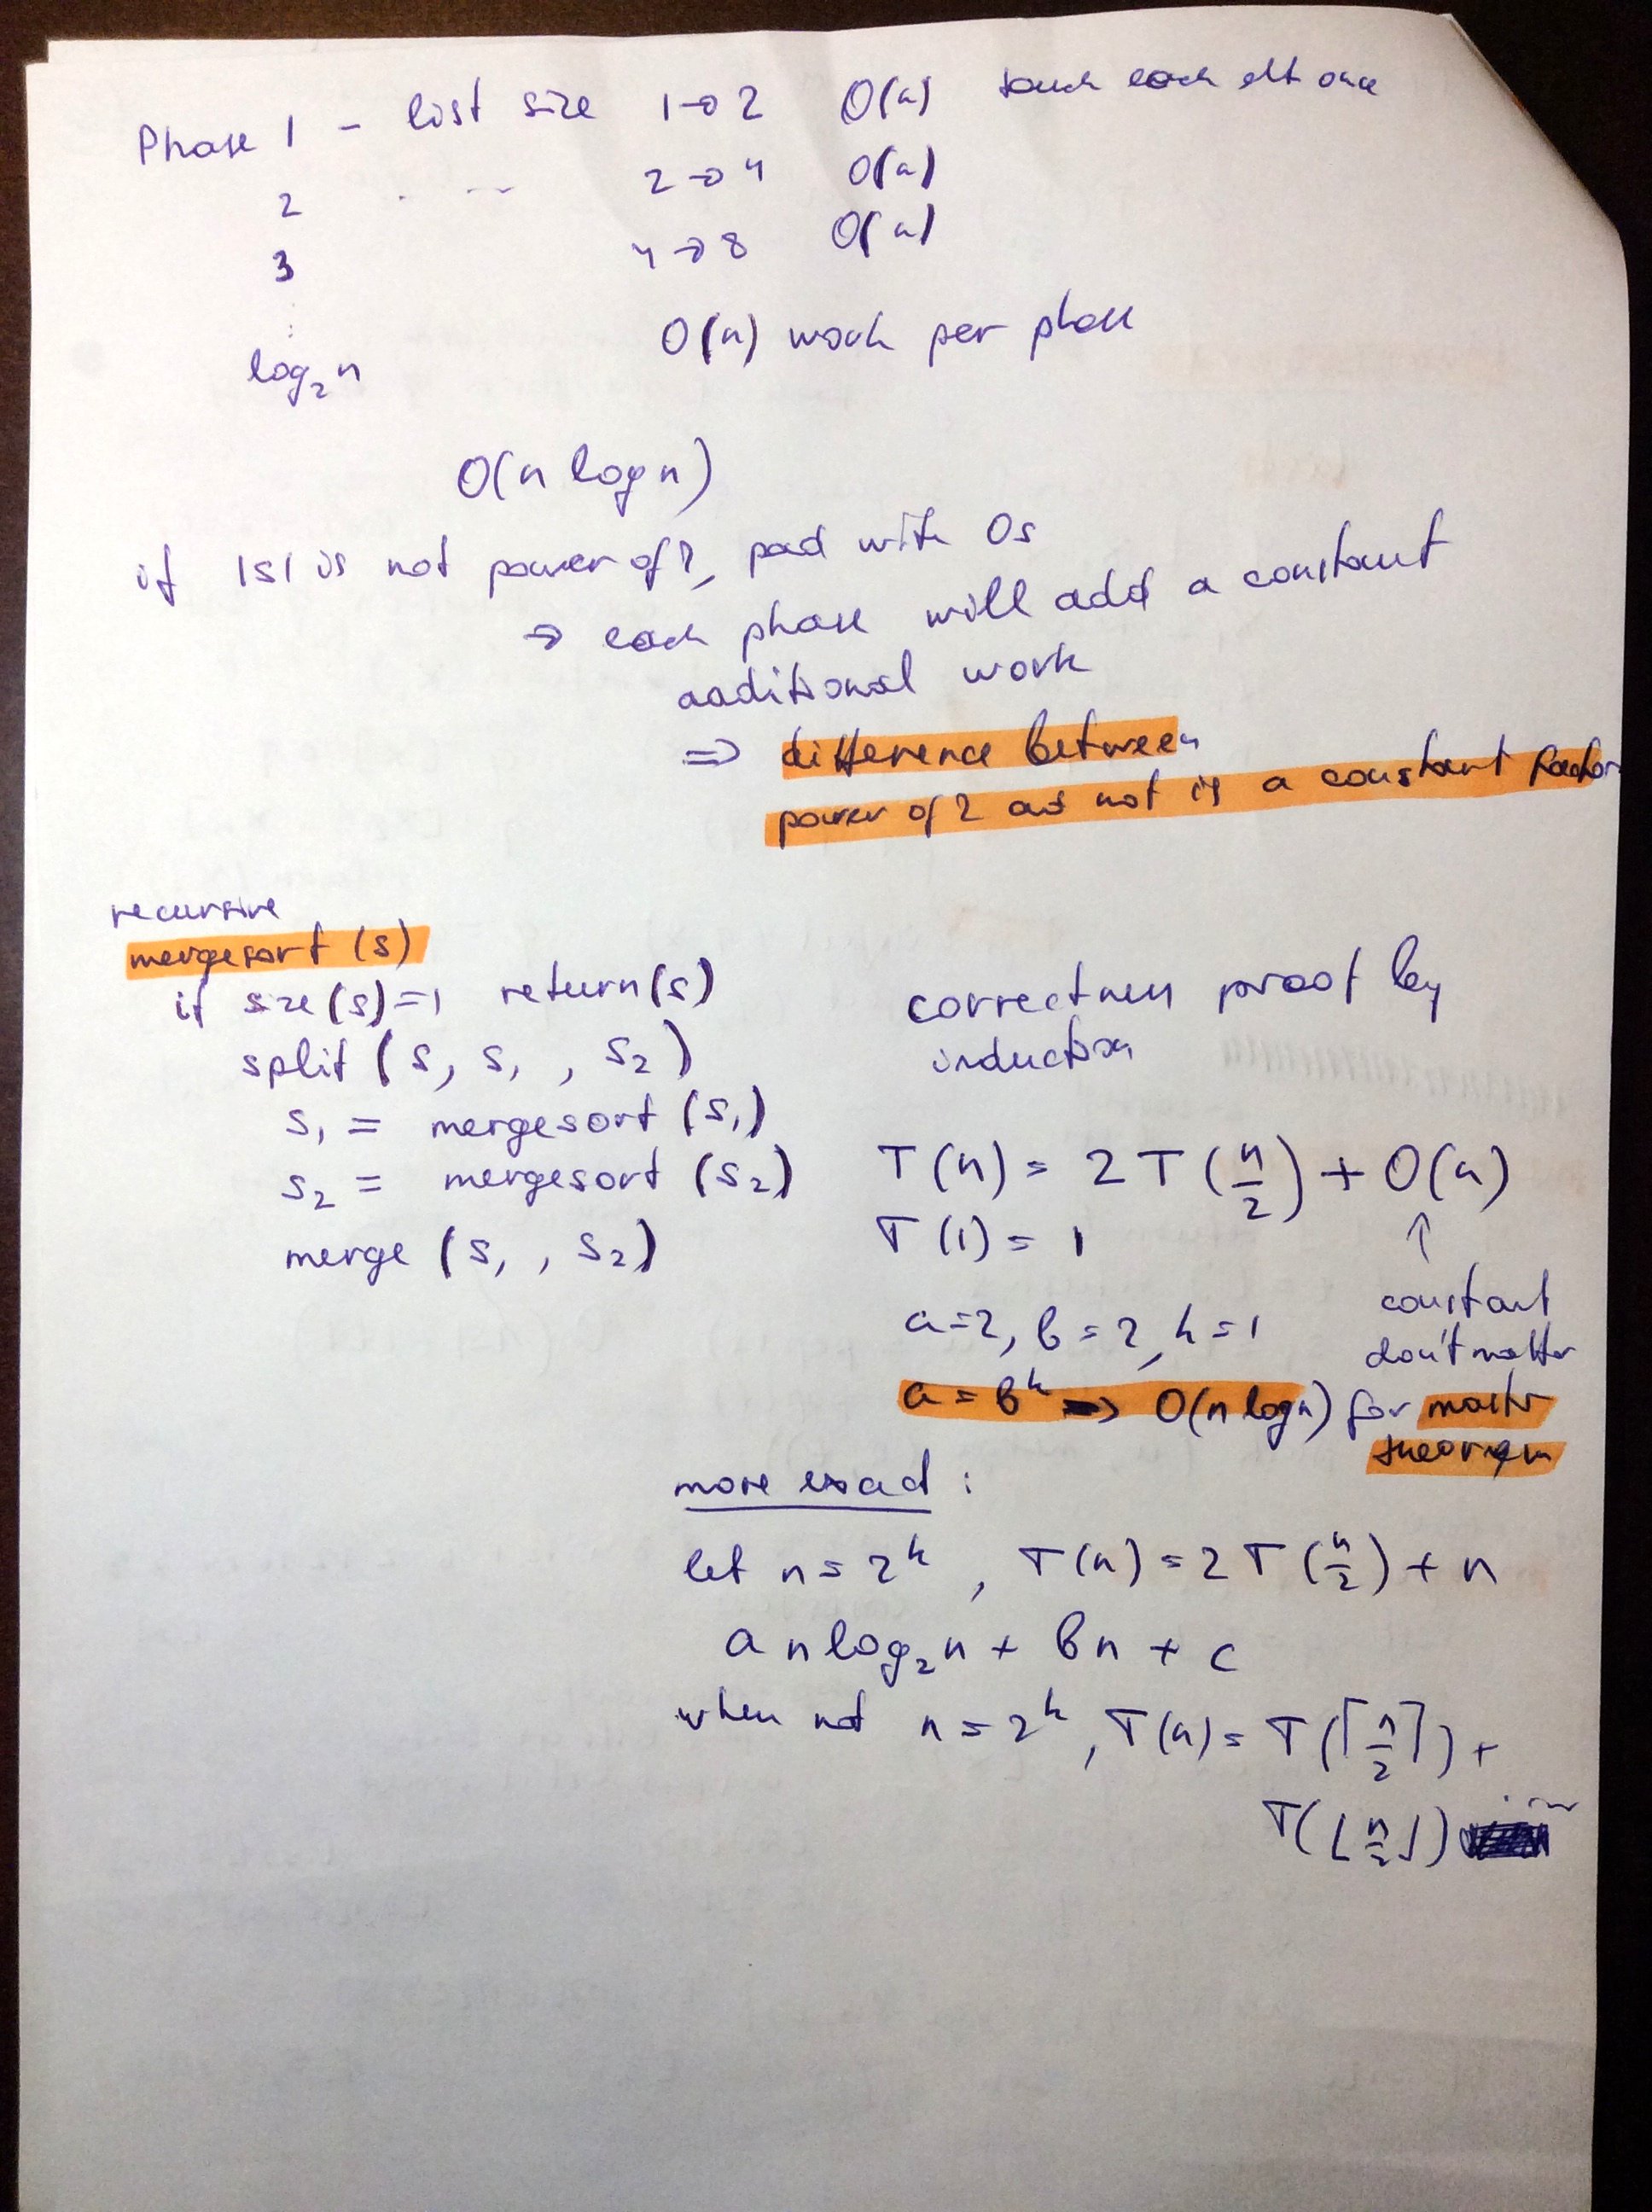 Phase 1 - list size 1→2 O(n) touch each elt once
2 . .. 2→4 O(n)
3 4→8 O(n)
:
log₂n O(n) work per phase
O(n log n)
if |S| is not power of 2, pad with 0s
→ each phase will add a constant
additional work
⇒ difference between
power of 2 and not is a constant factor
recursive
mergesort (s)
if size(s)=1 return(s)
split (s, s₁, s₂)
s₁ = mergesort (s₁)
s₂ = mergesort (s₂)
merge (s₁, s₂)
correctness proof by
induction
T(n) = 2T(n/2) + O(n)
T(1) = 1
↑
constant
don't matter
for master
theorem
a=2, b=2, k=1
a = b^k → O(n log n)
more exact:
let n=2^k, T(n) = 2T(n/2) + n
a n log₂n + bn + c
when not n=2^k, T(n) = T(⌈n/2⌉) +
T(⌊n/2⌋) ...